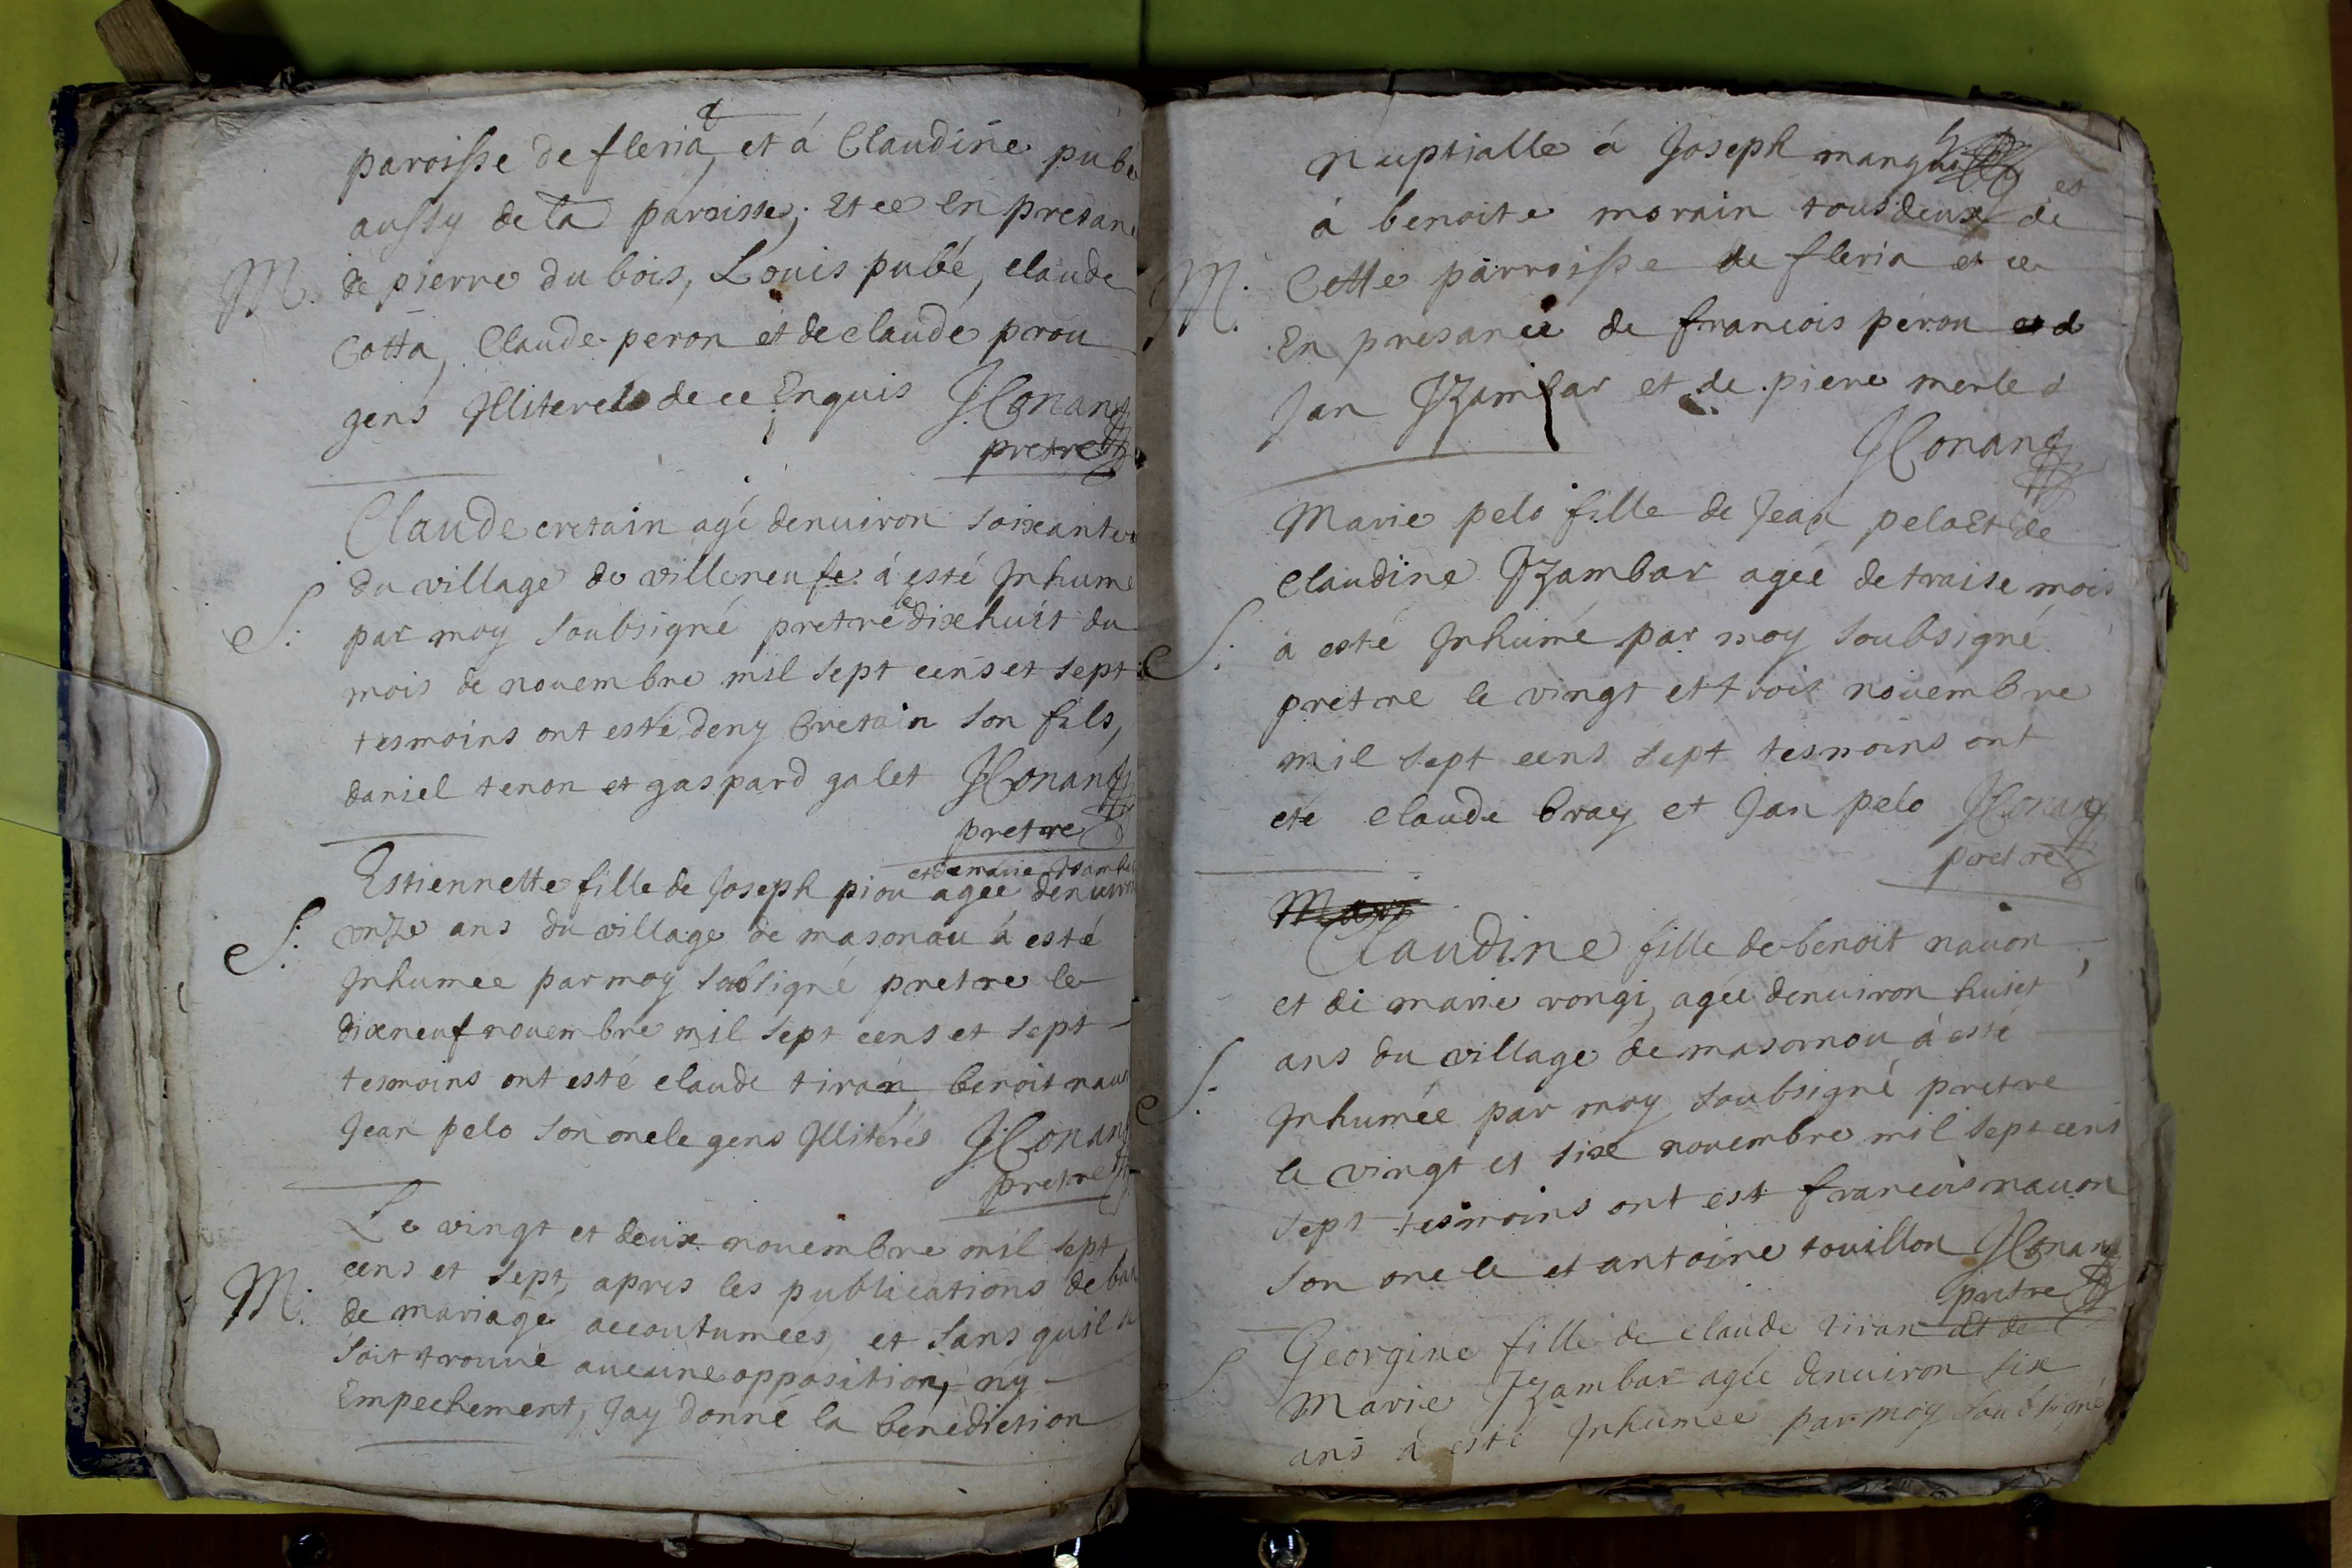 paroisse de fleria, et á Claudine pubé
aussy de la paroisse, Et ce En presan
M. de pierre du bois, Louis pubé, claude
Cotta, Claude peron et de claude prou
gens Illiteres de ce Enquis JConand
pretre
Claude cretain agé denuiron soixante
du village de villeneufe á esté Inhumé
S. par moy soubsigné pretre le dixhuit du
mois de nouembre mil sept cens et sept
tesmoins ont esté deny Cretain son fils,
daniel tenon et gaspard galet JConand
pretre
et de marie Izambar
Estiennette fille de Joseph piou agee denuiron
S. onze ans du village de masonau á esté
Inhumee par moy sousigné pretre le
dixneuf nouembre mil sept cens et sept
tesmoins ont esté claude tiran, benoit nauon
Jean pelo son oncle gens Illiterés JConand
pretre
Le vingt et deux nouembre mil sept
cens et sept, apres les publications de ban
M. de mariage accoutumees, et sans quil se
soit trouué aucune opposition, ny
Empechement, Jay donné la benediction
nuptialle á Joseph mangui
et
á benoite morain tous deux de
M. Cette parroisse de fleria et ce
En presance de francois peron et d
Jan Izambar et de piere merle
JConand
Marie pelo fille de Jean pelo Et de
Claudine Izambar agée de traise mois
S. á esté Inhumé par moy soubsigné
pretre le vingt et trois nouembre
mil sept cens sept tesmoins ont
eté claude bray et Jan pelo JConand
pretre
Mari
Claudine fille de benoit nauon
et de marie rongi, agée denuiron huict
ans du village de masornou á esté
S. Inhumée par moy soubsigné pretre
le vingt et six nouembre mil sept cens
sept tesmoins ont est francois nauon
son oncle et antoine touillon JConand
pretre
S. Georgine fille de claude tiran et de
Marie Izambar agée denuiron six
ans á esté Inhumee par moy soubsigné